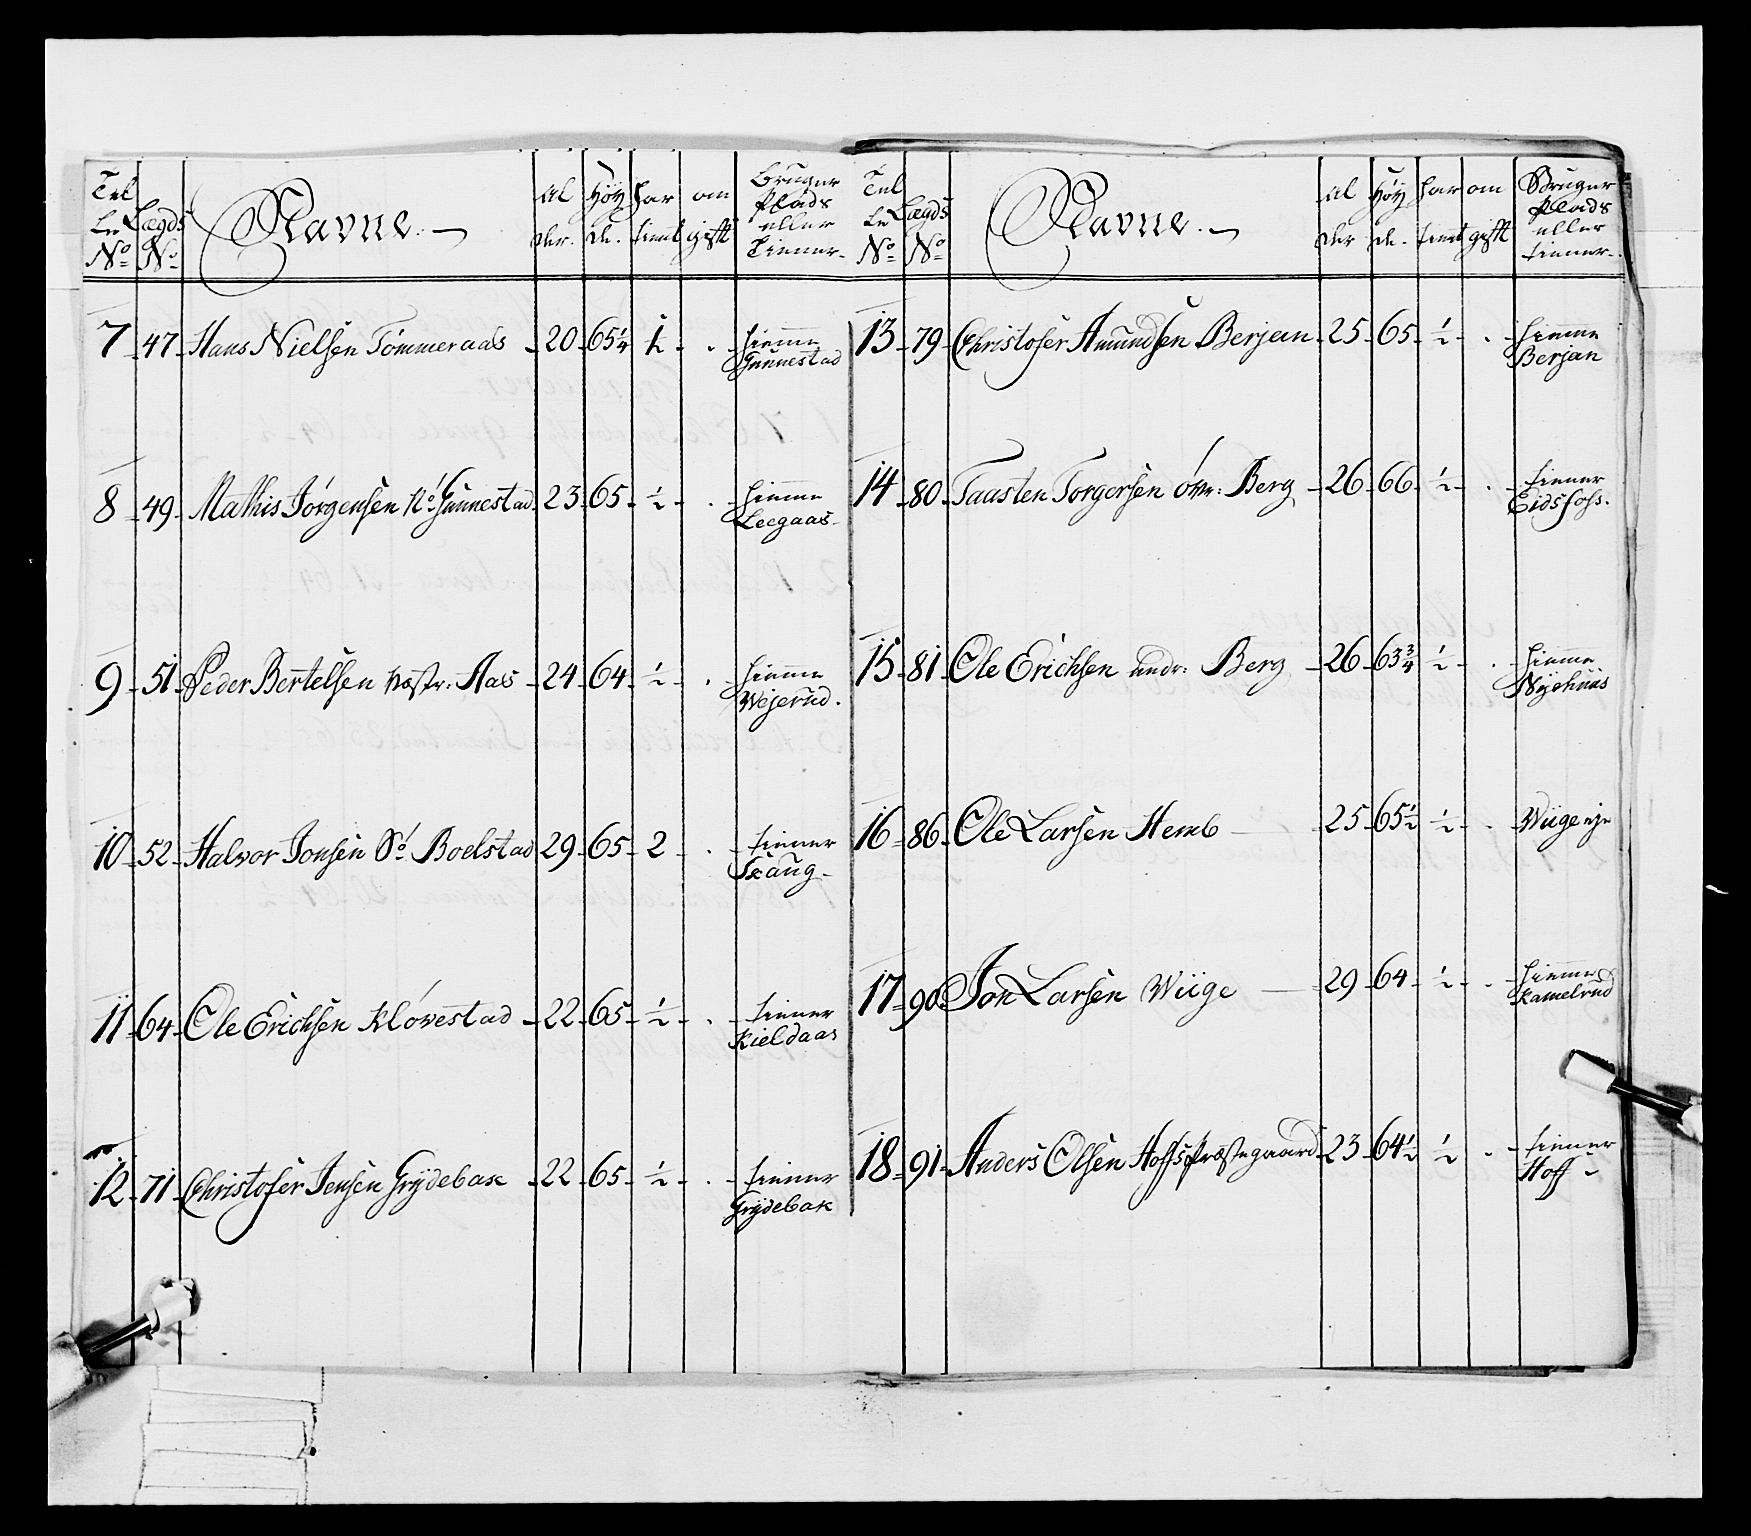 Tel Le No Lægds No Navne Al der. Høy de. har tient om gift Bruger Plads eller Tienner
7 47 Hans Nielsen Tømmeraas 20 65¼ ½ . hiemme Gunnestad
8 49 Mathis Jørgensen No Gunnestad 23 65 ½ . hiemme Leegaas
9 51 Peder Bertelsen væstr. Aas 24 64 ½ . hiemme Wejerud.
10 52 Halvor Jonsen So Boelstad 29 65 2 . tienner Skaug
11 64 Ole Erichsen Kløvestad 22 65 ½ . tienner Kieldaas
12 71 Christofer Jensen Grÿdebak 22 65 ½ . tienner Grÿdebak
Tel Le No Lægds No Navne Al der Høy de. har tient om gift Bruger Plads eller tienner
13 79 Christofer Amundsen Berjan 25 65 ½ . hiemme Berjan
14 80 Taasten Torgersen øvr: Berg 26 66 ½ . tienner Eidsfoss.
15 81 Ole Erichsen undr: Berg 26 63¾ ½ . hiemme Nÿehuus
16 86 Ole Larsen Hemb 25 65½ ½ . Wiige eje
17 90 Jon Larsen Wiige 29 64 ½ . hiemme Kamelrud
18 91 Anders Olsen Hoffs Præstegaard 23 64½ ½ . tienner Hoff